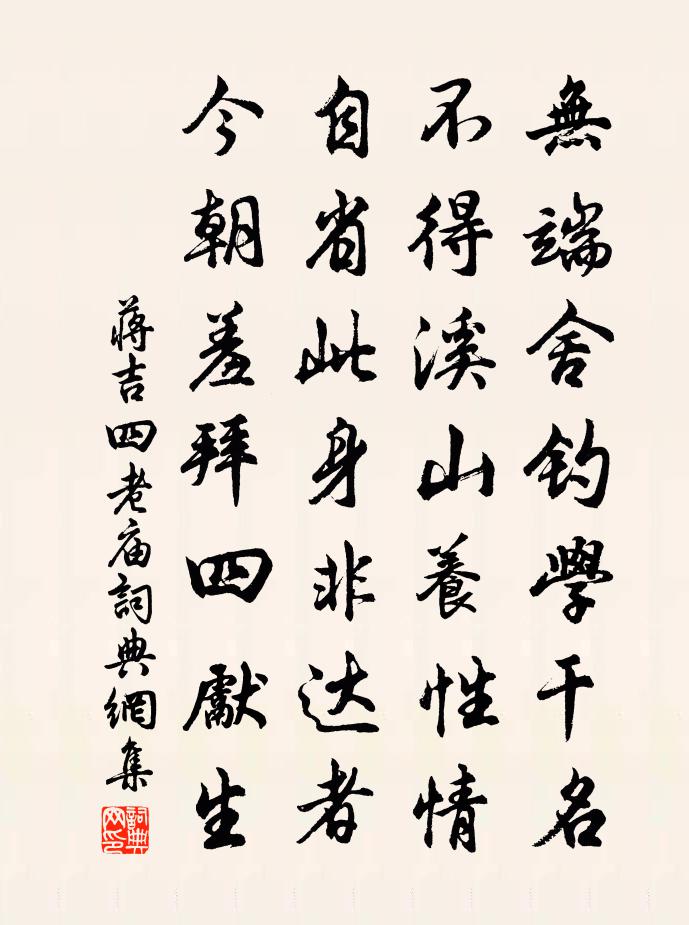 無端舍釣學干名
不得溪山養性情
自省此身非达者
今朝羞拜四獻生
蔣吉四老庙詞典網集
詞典网印